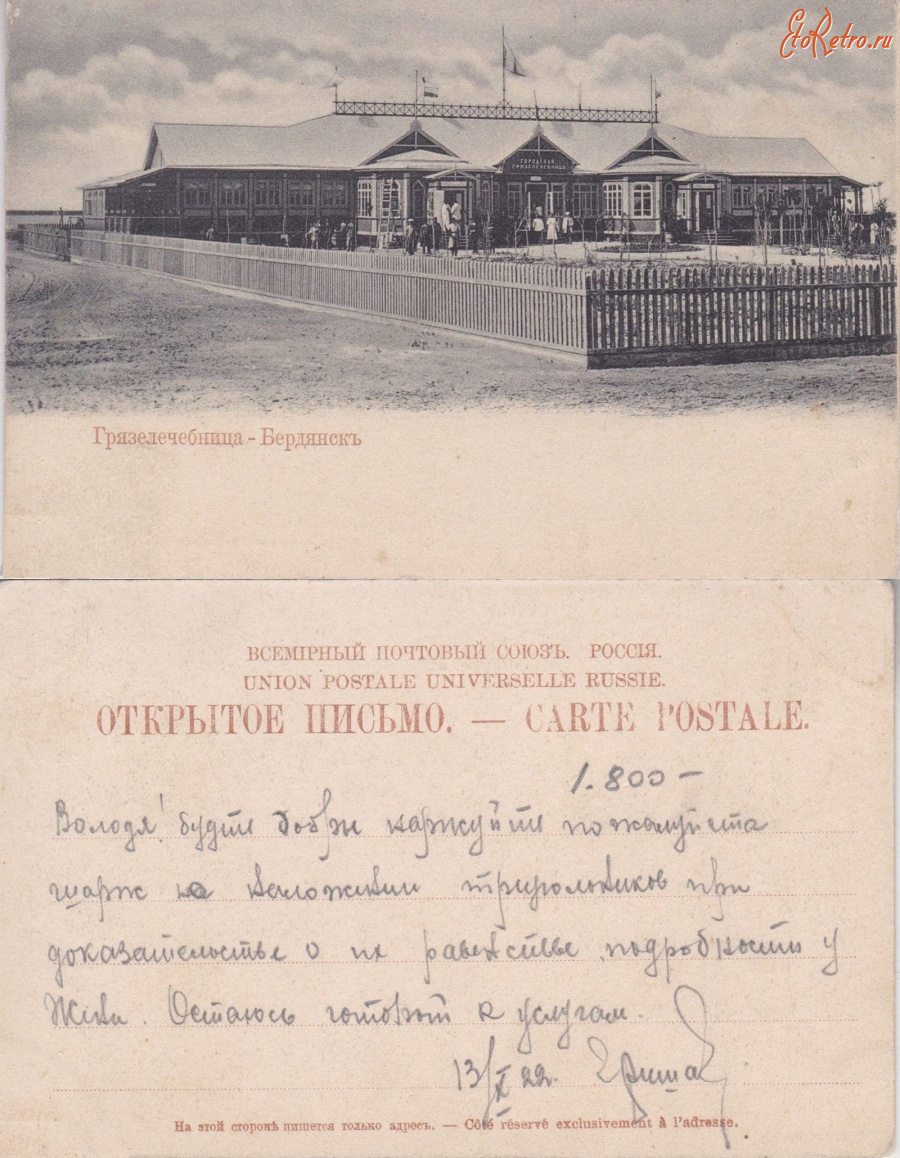 EtoRetro.ru
ГОРОДСКАЯ
ГРЯЗЕЛЕЧЕБНИЦА
Грязелечебница - Бердянскъ
ВСЕМІРНЫЙ ПОЧТОВЫЙ СОЮЗЪ. РОССІЯ.
UNION POSTALE UNIVERSELLE RUSSIE.
ОТКРЫТОЕ ПИСЬМО. — CARTE POSTALE.
1.800 —
Володя! будте добры пожалуйста
шарж на наложении треугольников при
доказательстве о их равенстве, подробности у
Жени. Остаюсь готовый к услугам.
13/X 22. Гриша
На этой сторонѣ пишется только адресъ. — Côté réservé exclusivement à l'adresse.